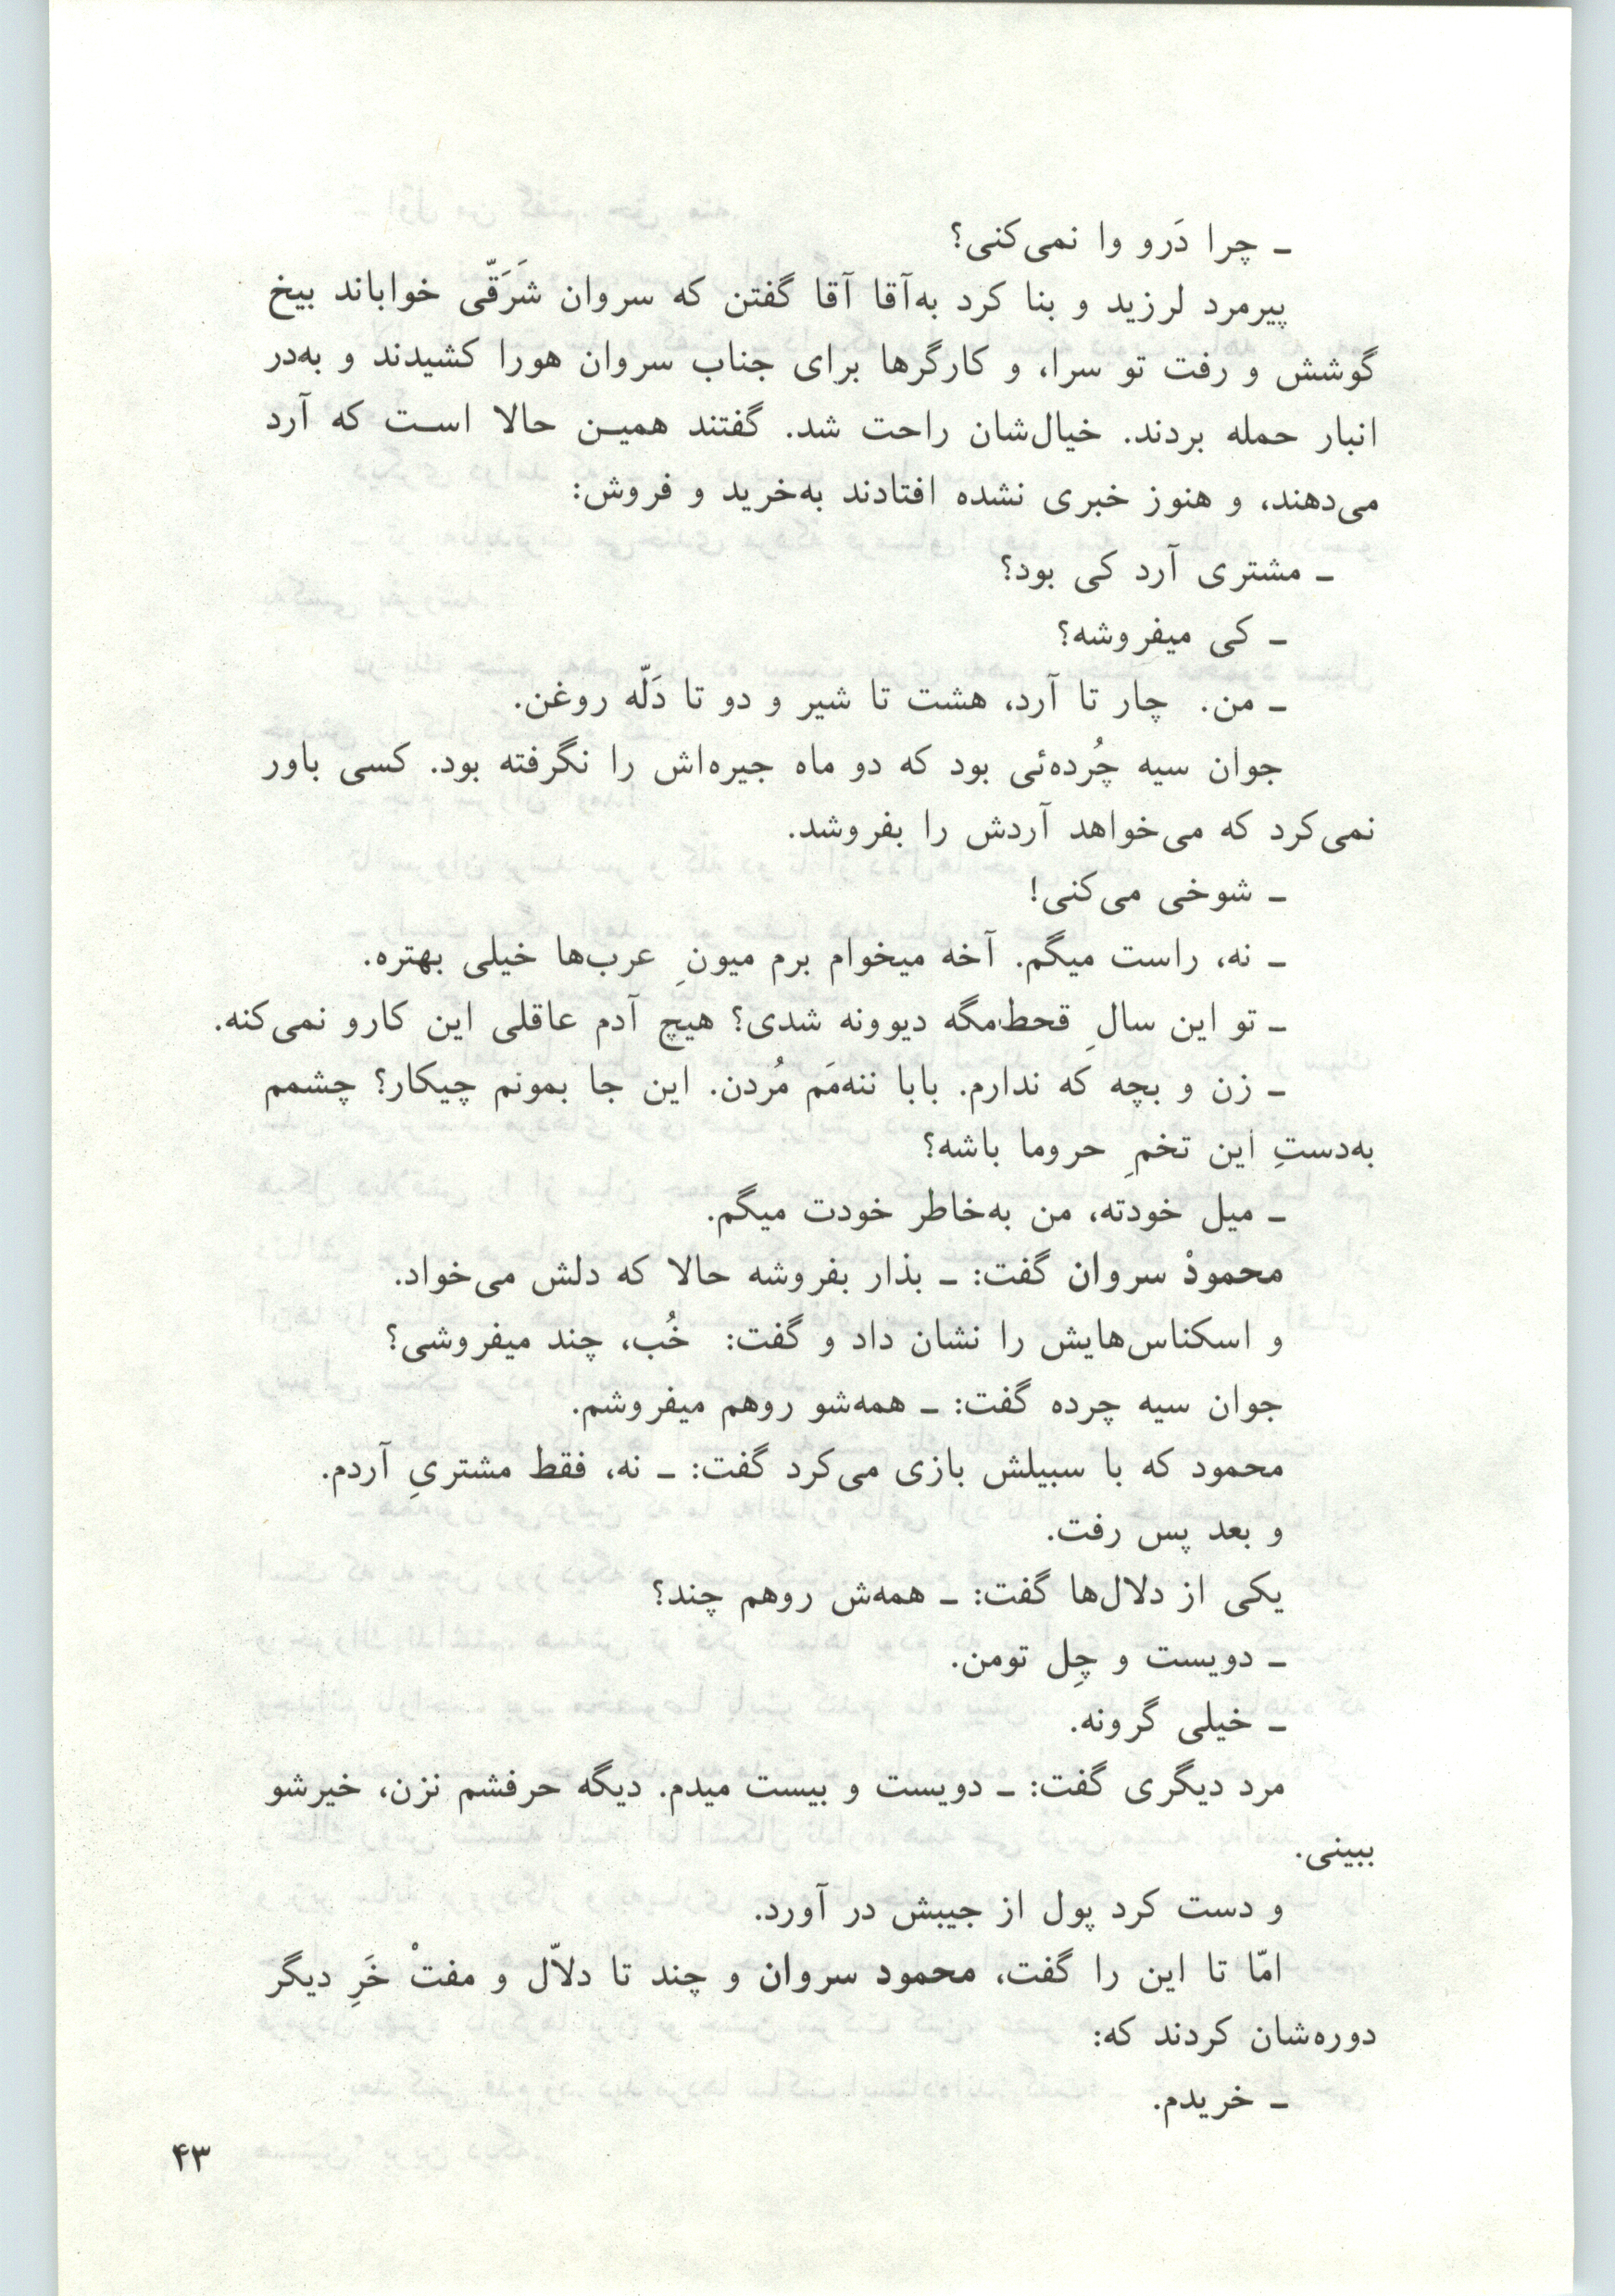 ـ چرا دَرو وا نمی‌کنی؟
پیرمرد لرزید و بنا کرد به‌آقا آقا گفتن که سروان شَرَقّی خواباند بیخ
گوشش و رفت تو سرا، و کارگرها برای جناب سروان هورا کشیدند و به‌در
انبار حمله بردند. خیال‌شان راحت شد. گفتند همیـن حالا اسـت که آرد
می‌دهند، و هنوز خبری نشده افتادند به‌خرید و فروش:
ـ مشتری آرد کی بود؟
ـ کی میفروشه؟
ـ من. چار تا آرد، هشت تا شیر و دو تا دَلّه روغن.
جوان سیه چُرده‌ئی بود که دو ماه جیره‌اش را نگرفته بود. کسی باور
نمی‌کرد که می‌خواهد آردش را بفروشد.
ـ شوخی می‌کنی!
ـ نه، راست میگم. آخه میخوام برم میونِ عرب‌ها خیلی بهتره.
ـ تو این سالِ قحط‌مگه دیوونه شدی؟ هیچ آدم عاقلی این کارو نمی‌کنه.
ـ زن و بچه که ندارم. بابا ننه‌مَم مُردن. این جا بمونم چیکار؟ چشمم
به‌دستِ این تخمِ حروما باشه؟
ـ میل خودته، من به‌خاطر خودت میگم.
محمودْ سروان گفت: ـ بذار بفروشه حالا که دلش می‌خواد.
و اسکناس‌هایش را نشان داد و گفت: خُب، چند میفروشی؟
جوان سیه چرده گفت: ـ همه‌شو روهم میفروشم.
محمود که با سبیلش بازی می‌کرد گفت: ـ نه، فقط مشتریِ آردم.
و بعد پس رفت.
یکی از دلال‌ها گفت: ـ همه‌ش روهم چند؟
ـ دویست و چِل تومن.
ـ خیلی گرونه.
مرد دیگری گفت: ـ دویست و بیست میدم. دیگه حرفشم نزن، خیرشو
ببینی.
و دست کرد پول از جیبش در آورد.
امّا تا این را گفت، محمود سروان و چند تا دلاّل و مفتْ خَرِ دیگر
دوره‌شان کردند که:
ـ خریدم.
۴۳